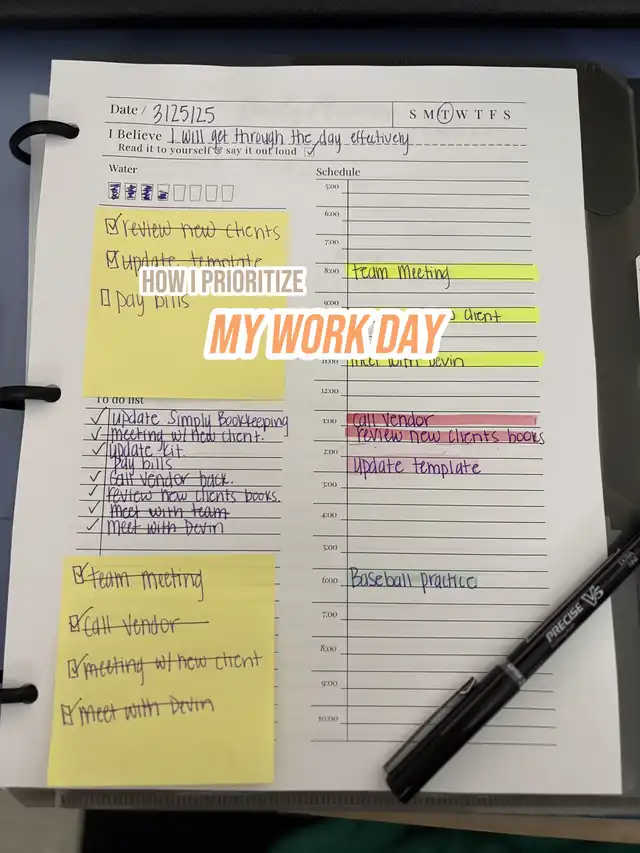 Date / 3/25/25
S M T W T F S
I Believe I will get through the day effectively
Read it to yourself & say it out loud
Water
review new clients
update template
pay bills
HOW I PRIORITIZE
MY WORK DAY
To do list
update Simply Bookkeeping
meeting w/ new client.
update kit.
Pay bills
Call vendor back.
review new clients books.
meet with team
meet with Devin
team meeting
Call vendor
meeting w/ new client
meet with Devin
Schedule
5:00
6:00
7:00
8:00 team Meeting
9:00
client
11:00 with Devin
12:00
1:00 Call Vendor
review new clients books
2:00
update template
3:00
4:00
5:00
6:00 Baseball practice
7:00
8:00
9:00
10:00
PRECISE V5